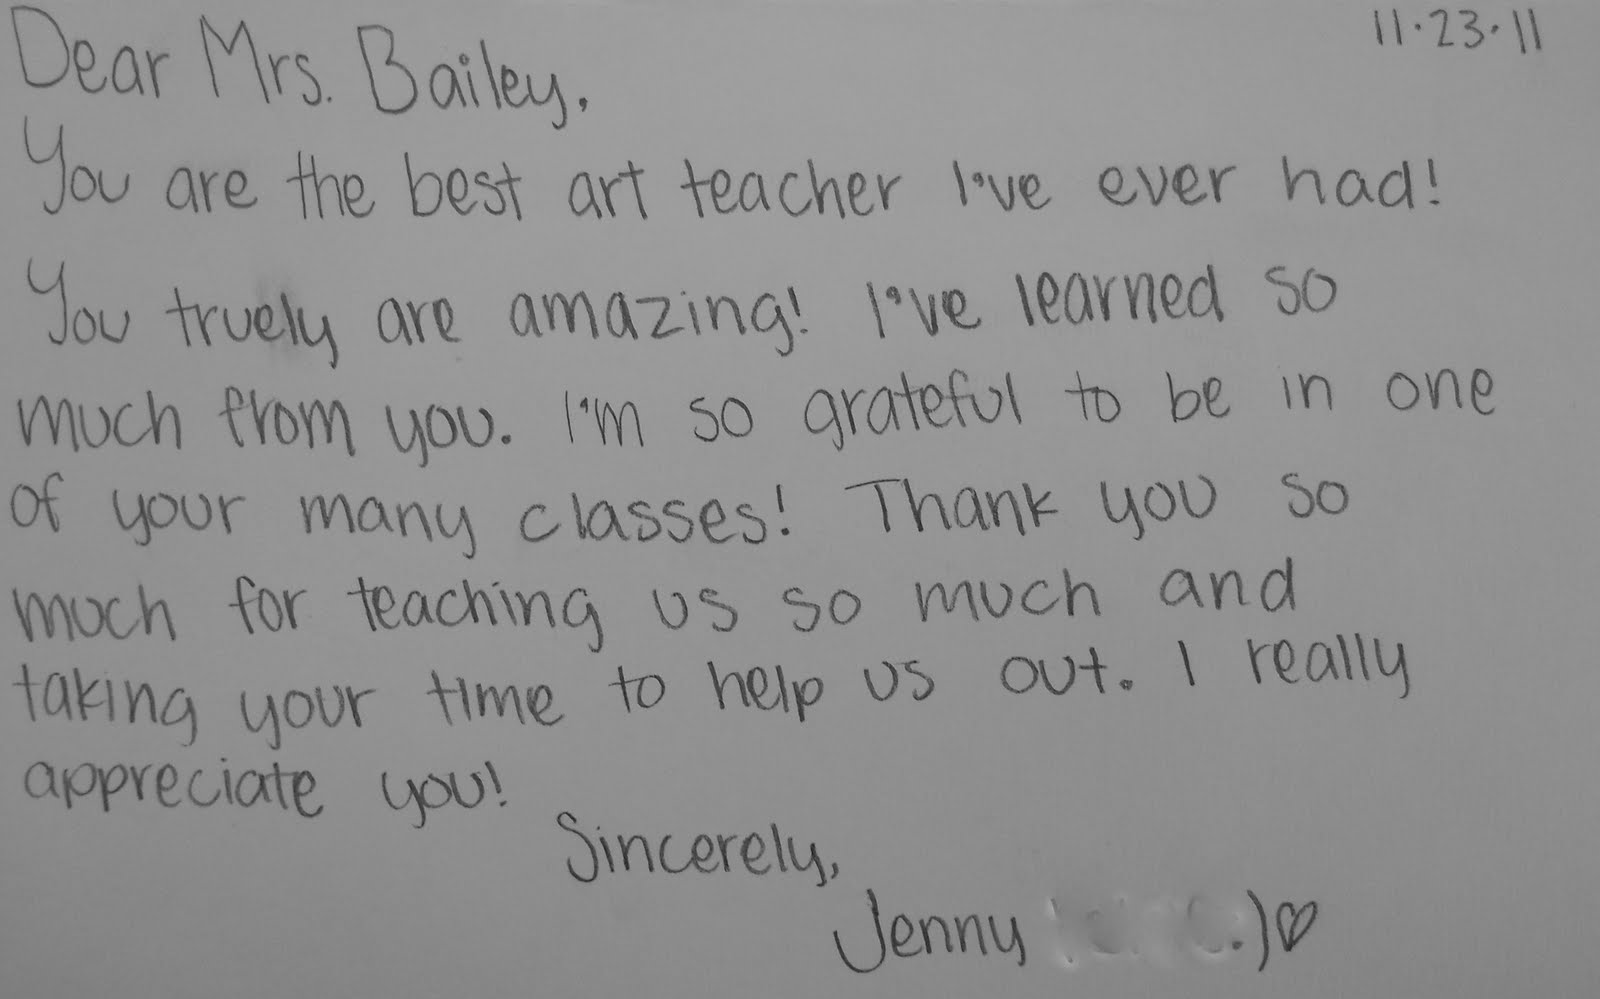 11.23.11
Dear Mrs. Bailey,
You are the best art teacher I've ever had!
You truely are amazing! I've learned so
much from you. I'm so grateful to be in one
of your many classes! Thank you so
much for teaching us so much and
taking your time to help us out. I really
appreciate you!
Sincerely,
Jenny .)♡